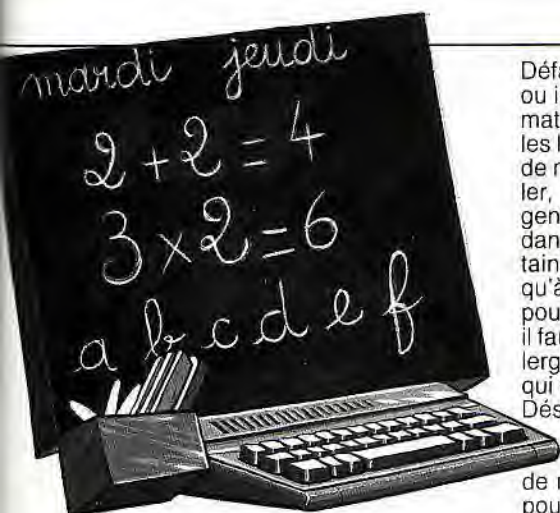 mardi jeudi
2 + 2 = 4
3 x 2 = 6
a b c d e f
ou
mat
les
de
ler,
gen
dan
tain
qu'à
pou
il fa
lerg
qui
Dés
de
pou